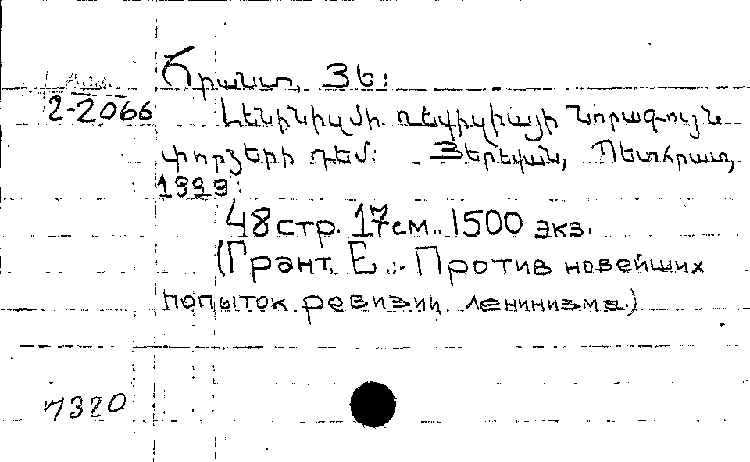 Գրանտ, Յե:
2-2066 Լենինիզմի ռեվիզիայի նորագույն
փորձերի դեմ: Յերեվան, Պետհրատ,
1933:
48 стр. 17 см. 1500 экз.
(Грант, Е.: Против новейших
попыток ревизии ленинизма.)
7320